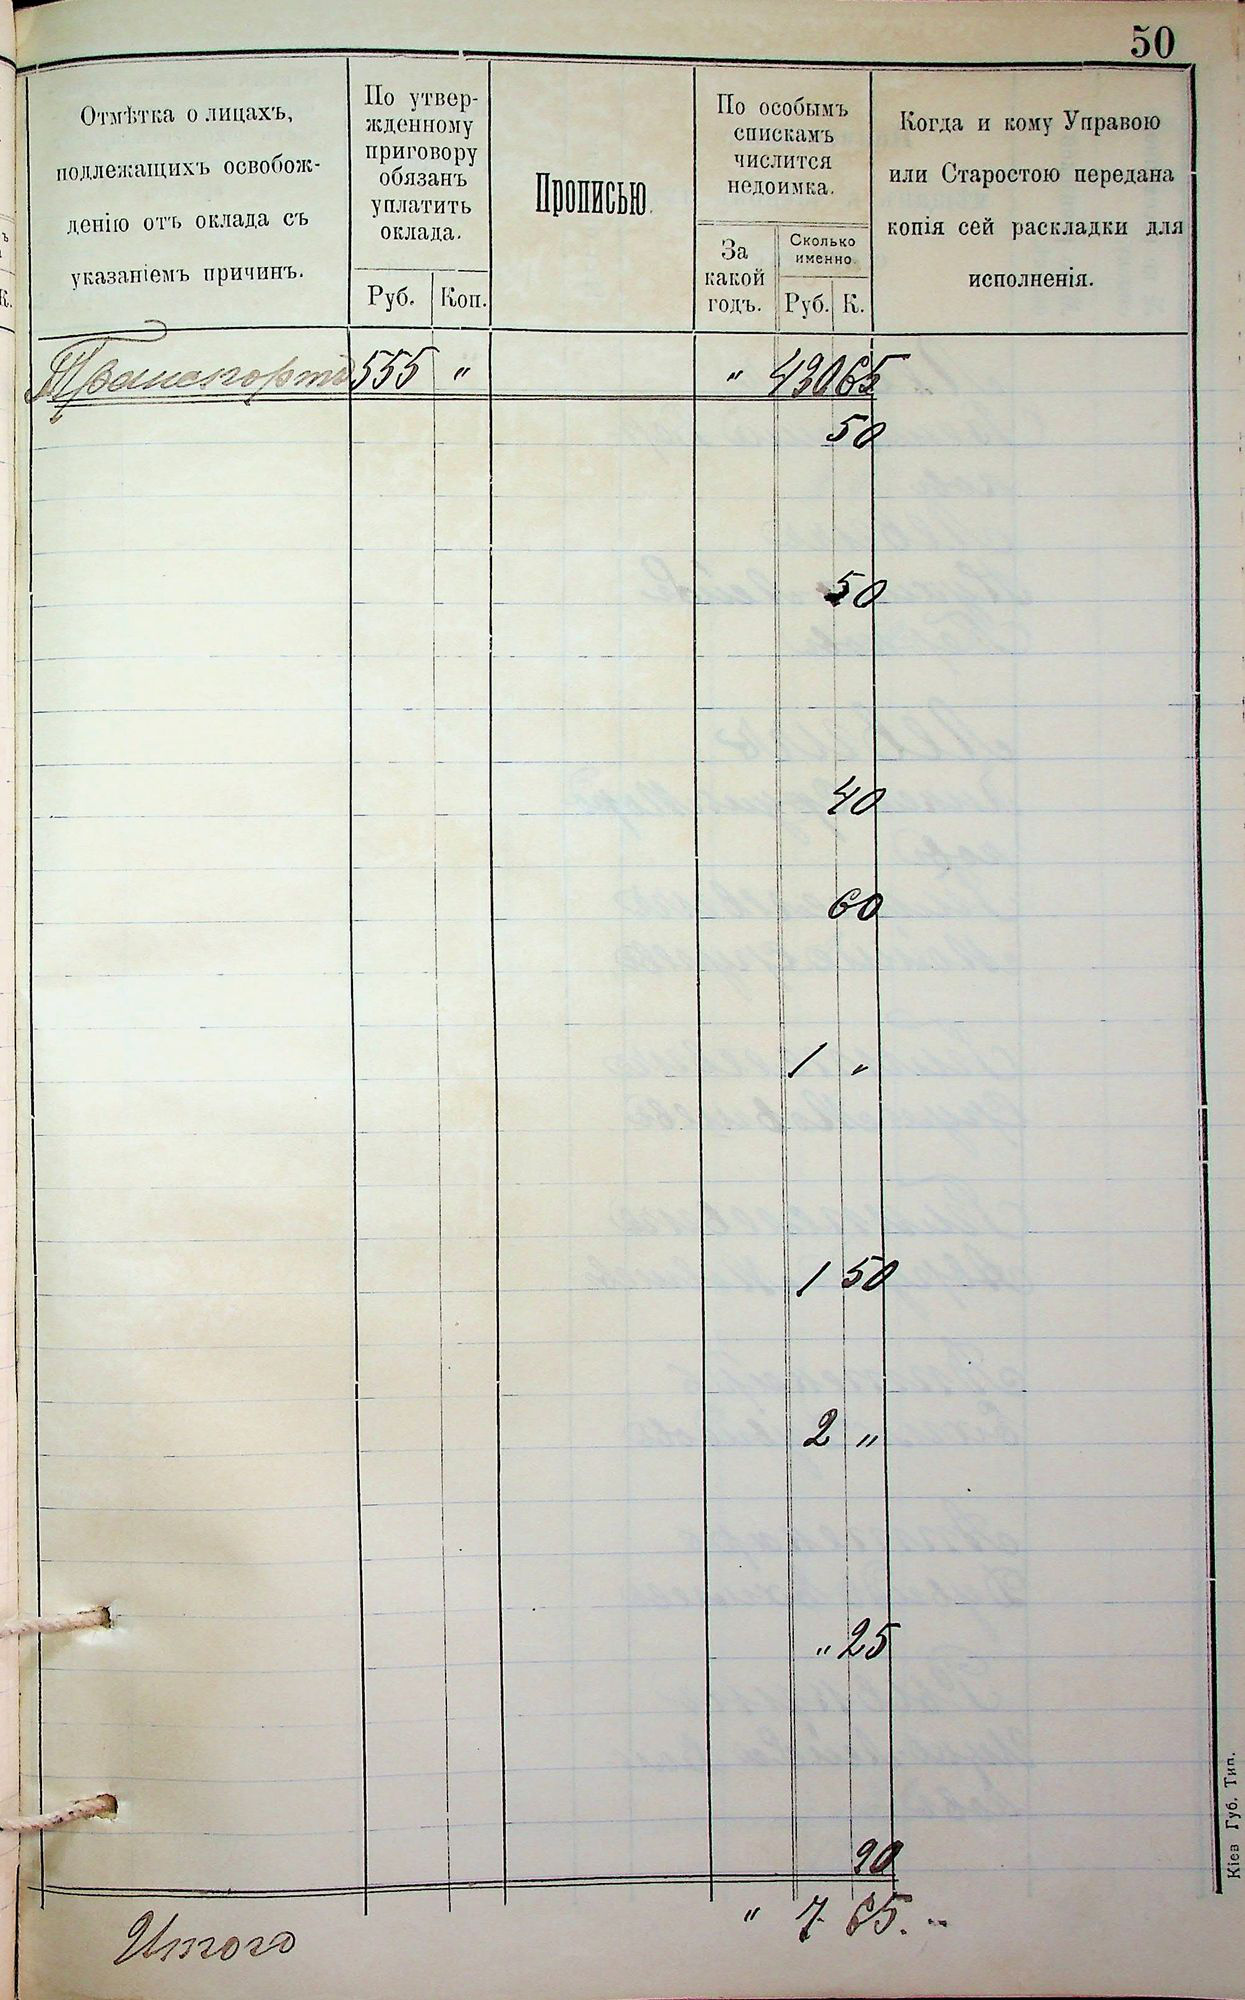 50
Отмѣтка о лицахъ,
подлежащихъ освобож-
денію отъ оклада съ
указаніемъ причинъ.
По утвер-
жденному
приговору
обязанъ
уплатить
оклада.
Руб.
Коп.
Прописью.
По особымъ
спискамъ
числится
недоимка.
За
какой
годъ.
Сколько
именно.
Руб.
К.
Когда и кому Управою
или Старостою передана
копія сей раскладки для
исполненія.
Транспортъ 555 " " 430 65
50
50
40
60
1 "
1 50
2 "
" 25
90
Итого " 7 65.
Кіев Губ. Тип.